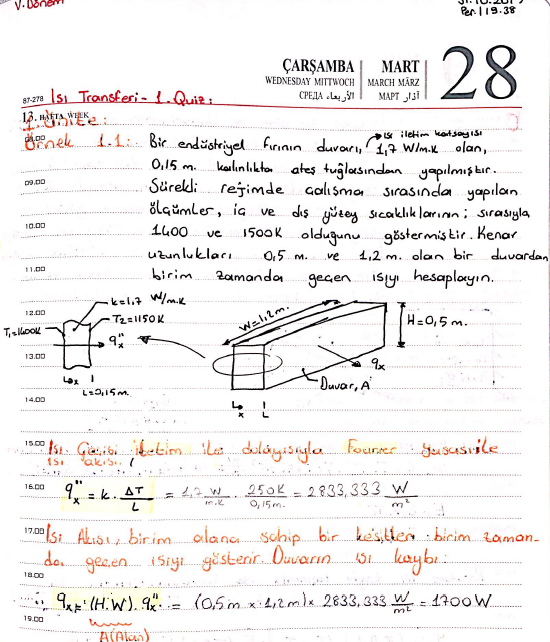 V. Dönem
Per | 19.38
ÇARŞAMBA | MART 28
WEDNESDAY MITTWOCH | MARCH MÄRZ
СРЕДА الأربعاء | МАРТ آذار
87-278
13. HAFTA WEEK
Isı Transferi - 1. Quiz:
1. Ünite:
→ısı iletim katsayısı
Örnek 1.1: Bir endüstriyel fırının duvarı, 1,7 W/m.K olan,
0,15 m. kalınlıkta ateş tuğlasından yapılmıştır.
09.00
Sürekli rejimde çalışma sırasında yapılan
ölçümler, iç ve dış yüzey sıcaklıklarının; sırasıyla
10.00
1400 ve 1500K olduğunu göstermiştir. Kenar
uzunlukları 0,5 m. ve 1,2 m. olan bir duvardan
11.00
birim zamanda geçen ısıyı hesaplayın.
12.00
k=1,7 W/m.K
T₁=1400K
T₂=1150K
q″ₓ
13.00
x L
L=0,15m.
W=1,2m.
H=0,5 m.
qₓ
Duvar, A
x L
14.00
15.00
Isı Geçişi İletim ile dolayısıyla Fourier yasası ile
ısı akısı
16.00
q″ₓ = k · ΔT/L = 1,7 W/m.K · 250K/0,15m. = 2833,333 W/m²
17.00
Isı Akısı, birim alana sahip bir kesitten birim zaman-
da geçen ısıyı gösterir. Duvarın ısı kaybı:
18.00
∴ qₓ = (H.W). q″ₓ = (0,5m x 1,2m)x 2833,333 W/m² = 1700W
19.00
A(Alan)